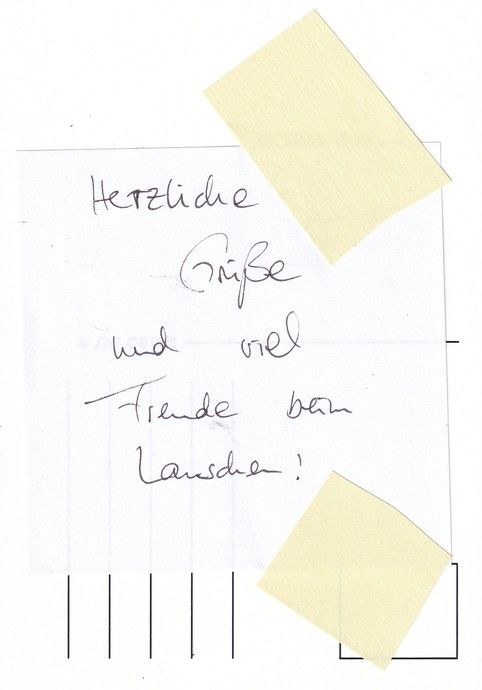 Herzliche
Grüße
und viel
Freude beim
Lauschen!